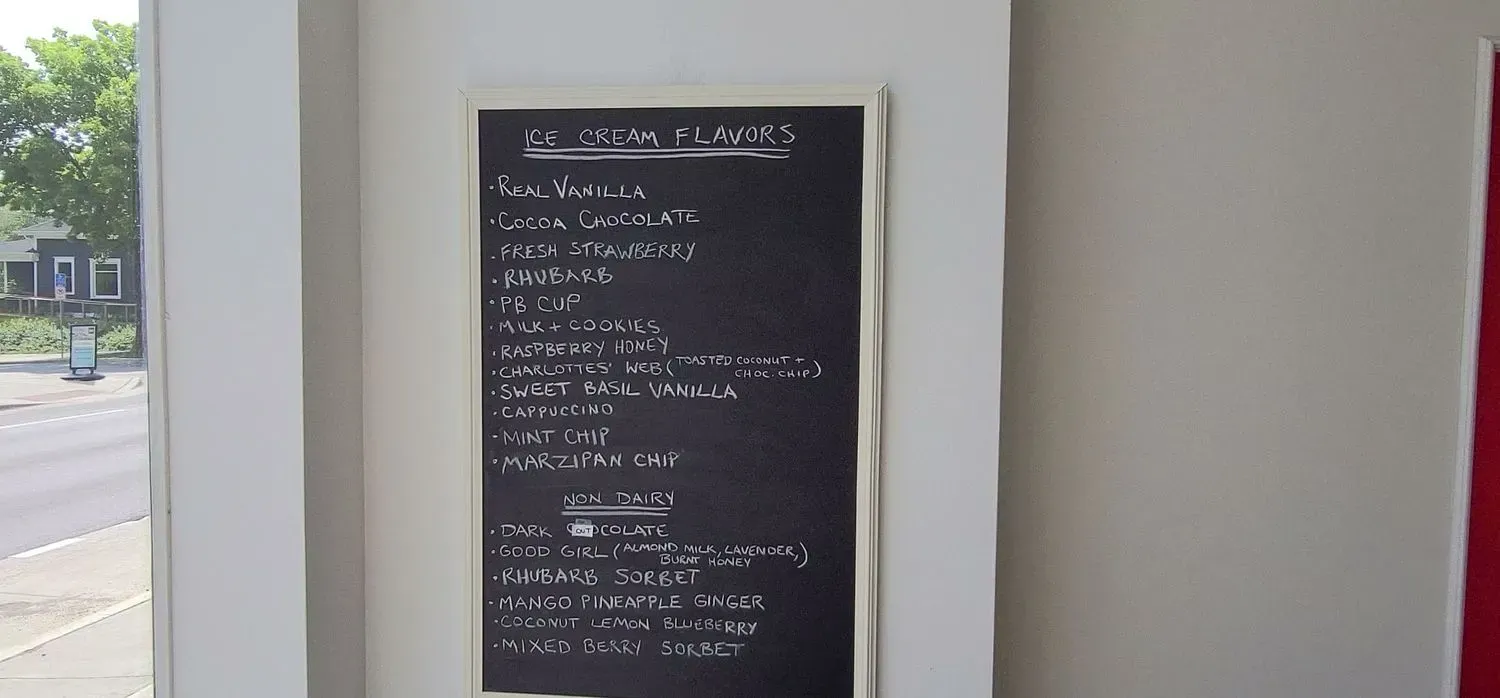 ICE CREAM FLAVORS
· REAL VANILLA
· COCOA CHOCOLATE
· FRESH STRAWBERRY
· RHUBARB
· PB CUP
· MILK + COOKIES
· RASPBERRY HONEY
· CHARLOTTES' WEB (TOASTED COCONUT +
CHOC. CHIP)
· SWEET BASIL VANILLA
· CAPPUCCINO
· MINT CHIP
· MARZIPAN CHIP
NON DAIRY
· DARK CHOCOLATE
OUT
· GOOD GIRL (ALMOND MILK, LAVENDER,
BURNT HONEY)
· RHUBARB SORBET
· MANGO PINEAPPLE GINGER
· COCONUT LEMON BLUEBERRY
· MIXED BERRY SORBET